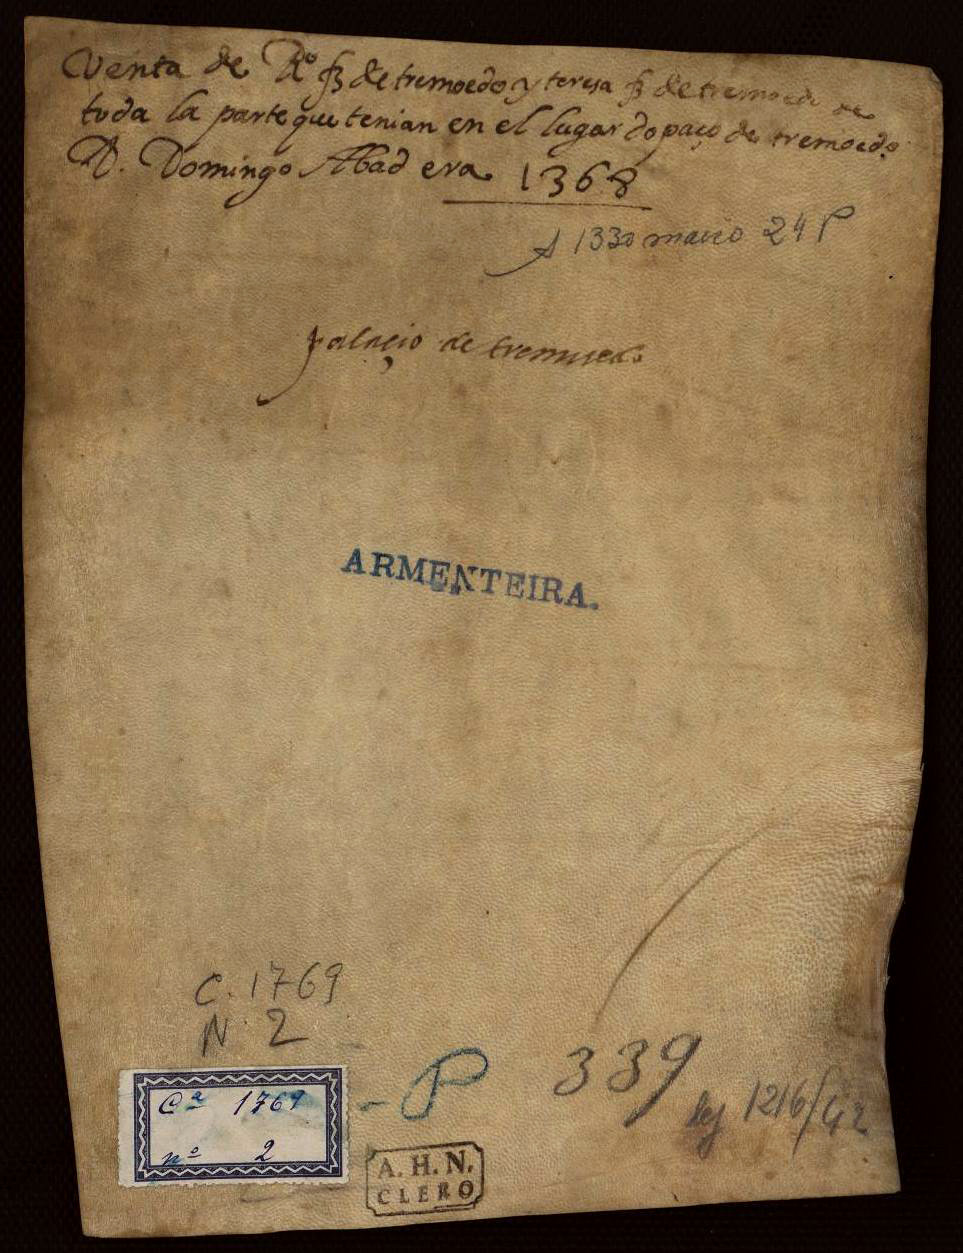 Venta de Rº fz de tremoedo y teresa fz de tremoedo de
toda la parte que tenian en el lugar do paço de tremoedo
A. Domingo Abad era 1368
A 1330 março 24 P
palaçio de tremuedo
ARMENTEIRA.
C. 1769
N. 2
Cª 1769
nº 2
P
339
leg 1216/42
A. H. N.
CLERO